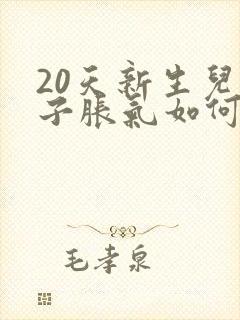 20天新生兒
子脹氣如何
毛孝泉